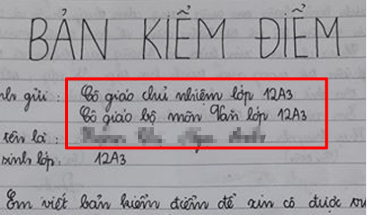 BẢN KIỂM ĐIỂM
ính gửi: Cô giáo chủ nhiệm lớp 12A3
Cô giáo bộ môn Văn lớp 12A3
tên là:
sinh lớp: 12A3
Em viết bản kiểm điểm để xin cô được